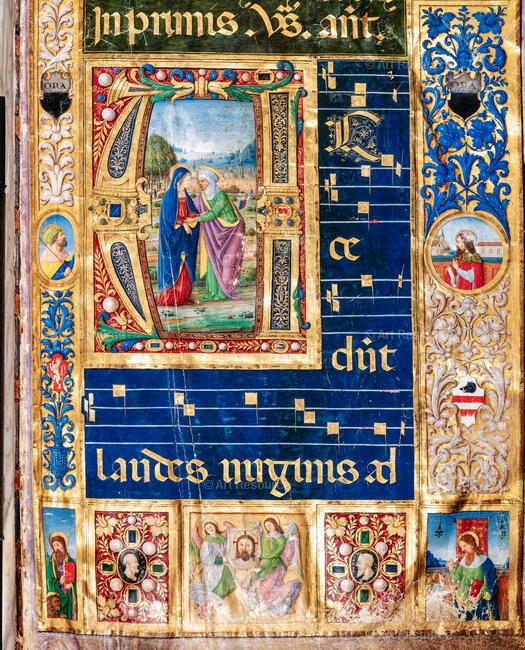 In primis .Vs̃. añt.
ORA
A C
ce
dũt
laudes uirginis ad
© Art Resource